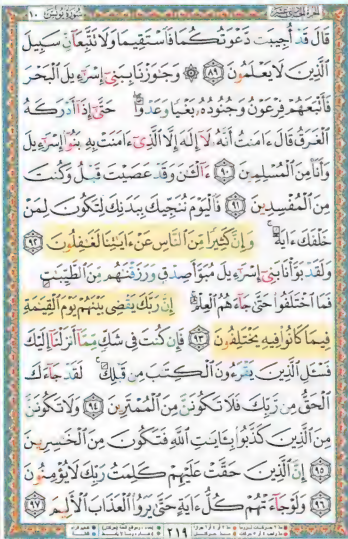 ١٠ سورة يونس
قَالَ قَدْ أُجِيبَت دَّعْوَتُكُمَا فَٱسْتَقِيمَا وَلَا تَتَّبِعَآنِّ سَبِيلَ
ٱلَّذِينَ لَا يَعْلَمُونَ ﴿٨٩﴾ ۞ وَجَٰوَزْنَا بِبَنِىٓ إِسْرَٰٓءِيلَ ٱلْبَحْرَ
فَأَتْبَعَهُمْ فِرْعَوْنُ وَجُنُودُهُۥ بَغْيًا وَعَدْوًا ۖ حَتَّىٰٓ إِذَآ أَدْرَكَهُ
ٱلْغَرَقُ قَالَ ءَامَنتُ أَنَّهُۥ لَآ إِلَٰهَ إِلَّا ٱلَّذِىٓ ءَامَنَتْ بِهِۦ بَنُوٓا۟ إِسْرَٰٓءِيلَ
وَأَنَا۠ مِنَ ٱلْمُسْلِمِينَ ﴿٩٠﴾ ءَآلْـَٰٔنَ وَقَدْ عَصَيْتَ قَبْلُ وَكُنتَ
مِنَ ٱلْمُفْسِدِينَ ﴿٩١﴾ فَٱلْيَوْمَ نُنَجِّيكَ بِبَدَنِكَ لِتَكُونَ لِمَنْ
خَلْفَكَ ءَايَةً ۚ وَإِنَّ كَثِيرًا مِّنَ ٱلنَّاسِ عَنْ ءَايَٰتِنَا لَغَٰفِلُونَ ﴿٩٢﴾
وَلَقَدْ بَوَّأْنَا بَنِىٓ إِسْرَٰٓءِيلَ مُبَوَّأَ صِدْقٍ وَرَزَقْنَٰهُم مِّنَ ٱلطَّيِّبَٰتِ
فَمَا ٱخْتَلَفُوا۟ حَتَّىٰ جَآءَهُمُ ٱلْعِلْمُ ۚ إِنَّ رَبَّكَ يَقْضِى بَيْنَهُمْ يَوْمَ ٱلْقِيَٰمَةِ
فِيمَا كَانُوا۟ فِيهِ يَخْتَلِفُونَ ﴿٩٣﴾ فَإِن كُنتَ فِى شَكٍّ مِّمَّآ أَنزَلْنَآ إِلَيْكَ
فَسْـَٔلِ ٱلَّذِينَ يَقْرَءُونَ ٱلْكِتَٰبَ مِن قَبْلِكَ ۚ لَقَدْ جَآءَكَ
ٱلْحَقُّ مِن رَّبِّكَ فَلَا تَكُونَنَّ مِنَ ٱلْمُمْتَرِينَ ﴿٩٤﴾ وَلَا تَكُونَنَّ
مِنَ ٱلَّذِينَ كَذَّبُوا۟ بِـَٔايَٰتِ ٱللَّهِ فَتَكُونَ مِنَ ٱلْخَٰسِرِينَ
﴿٩٥﴾ إِنَّ ٱلَّذِينَ حَقَّتْ عَلَيْهِمْ كَلِمَتُ رَبِّكَ لَا يُؤْمِنُونَ
﴿٩٦﴾ وَلَوْ جَآءَتْهُمْ كُلُّ ءَايَةٍ حَتَّىٰ يَرَوُا۟ ٱلْعَذَابَ ٱلْأَلِيمَ ﴿٩٧﴾
٢١٩